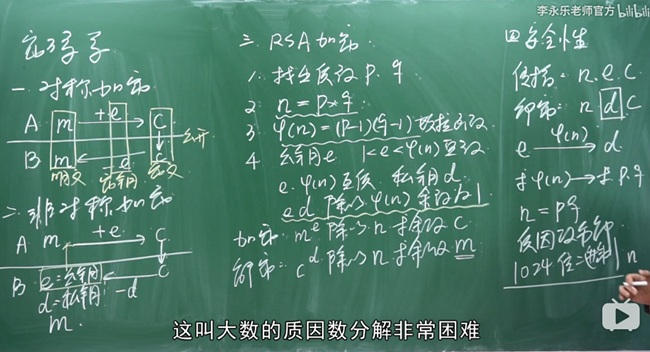 李永乐老师官方 bilibili
密码学
一 对称加密
A m +e C
B m e C
公开
明文 密钥 密文
二 非对称加密
A m +e C
B e=公钥 C
d=私钥 -d
m
三 RSA加密
1. 找出质数 P. q
2. n=P*q
3 φ(n)=(P-1)(q-1) 欧拉函数
4 公钥e 1<e<φ(n) 互质
e. φ(n)互质 私钥d
ed 除以φ(n) 余数为1
加密: m^e 除以n 求余数 C
解密: c^d 除以n 求余数 m
四 安全性
传播: n. e. C
解密: n d C
e φ(n) d
求φ(n) → 求 P.q
n=Pq
质因数分解
1024位二进制 n
这叫大数的质因数分解非常困难